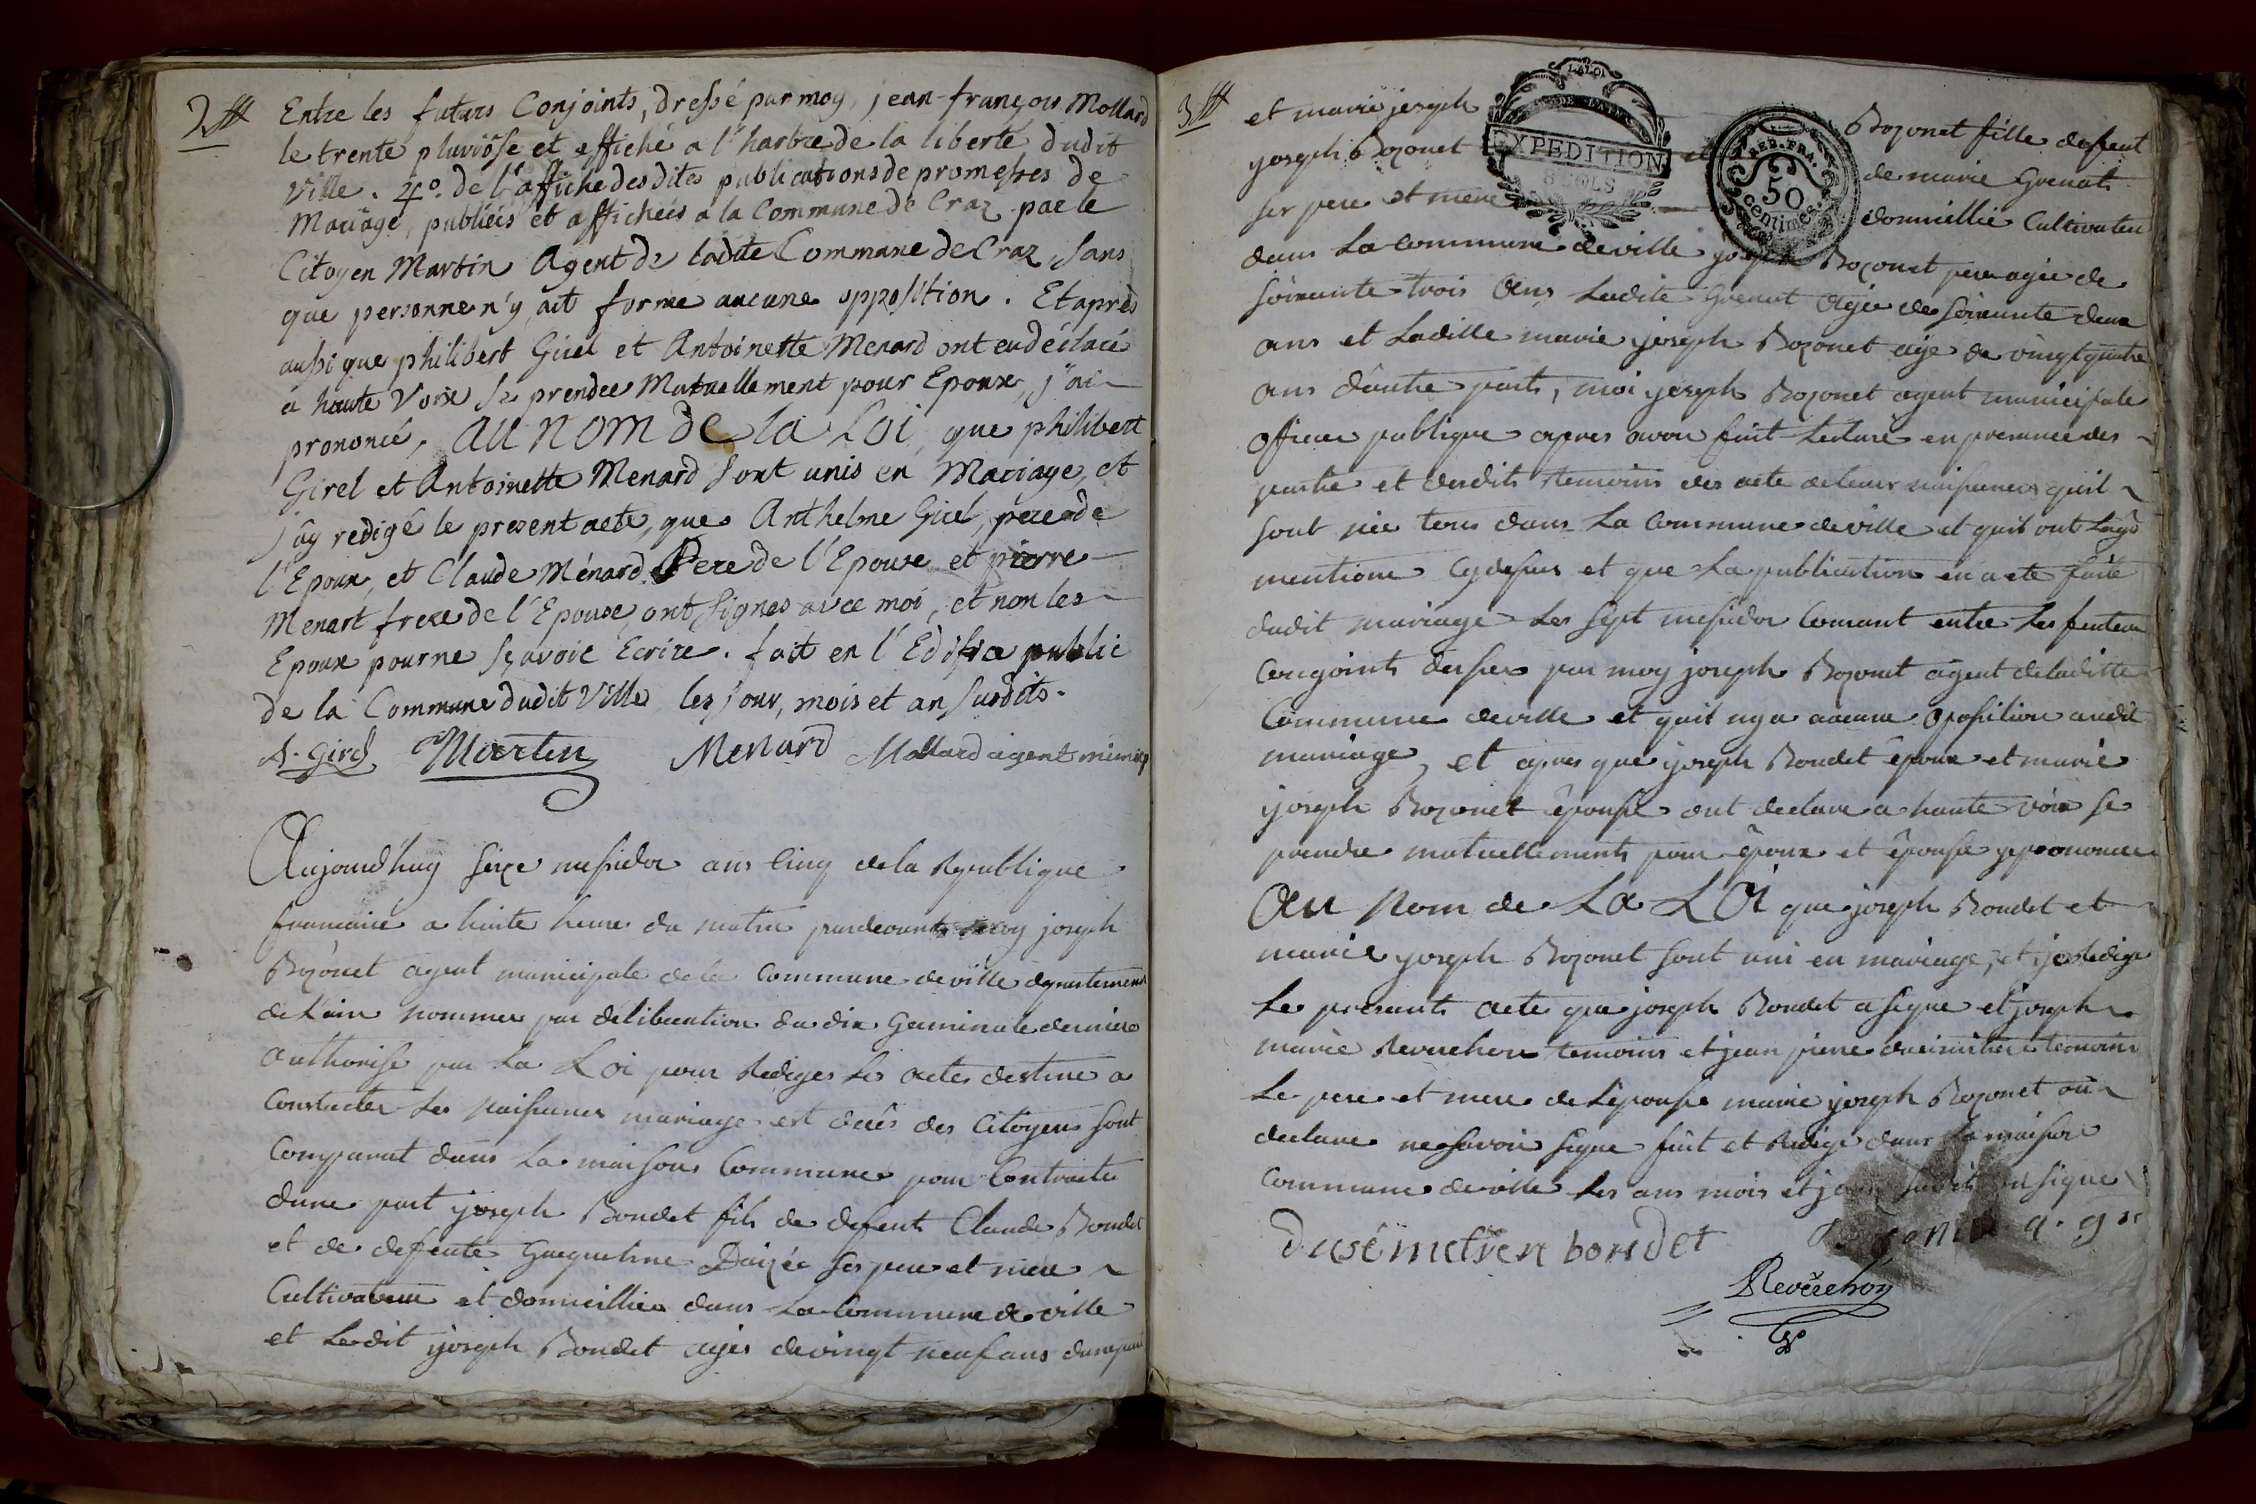 2
Entre les futurs Conjoints, dressé par moy, jean-françois Mollard
le trente pluviôse et affiché a l'harbre de la liberté dudit
Ville. 4o. de l'affiche desdites publications de promesses de
Mariage, publiées et affichées a la Commune de Craz par le
Citoyen Martin Agent de ladite Commune de Craz, sans
que personne n'y ait formé aucune opposition. Et après
aussi que philibert Girel et Antoinette Menard ont eu déclaré
a haute Voix se prendre Mutuellement pour Epoux, j'ai
prononcé, au nom de la Loi, que philibert
Girel et Antoinette Menard sont unis en Mariage, et
j'ay redigé le present acte, que Anthelme Girel, pere de
l'Epoux, et Claude Ménard Pere de l'Epouse et pierre
Menart frere de l'Epouse ont signés avec moi, et non les
Epoux pour ne sçavoir Ecrire. fait en l'Edifice public
de la Commune dudit Ville les jour, mois et an susdits.
A. Girel Martin Menard Mollard agent
Aujourd'huy seize messidor ans Cinq de la Republique
francaice a huite heure du matin pardevant moy joseph
Bozonet agent municipale de la Commune deville departement
de L'ain nommer par délibération du dix Germinale dernier
authorise par La Loi pour Rediges les actes destiner a
Constater les naissances mariage est décês des Citoyens sont
Comparut dans La maisons Commune pour Contracter
dune part joseph Bondet fils de defeunt Claude Bondet
et de defeunte ses pere et mere
Cultivateur et domicillier dans La Commune de ville
et Ledit joseph Bondet agés de vingt neuf ans dunepart
3
et marie joseph Bozonet fille defeut
joseph Bozonet et de marie Grenat
ser pere et mere domicillié Cultivateur
LA LOI
EXPEDITION
REP. FRA.
50
centimes
dans La commune deville joseph Bozonet pere agée de
soixante trois ans Ladite Grenat agée de soixante deux
ans et Laditte marie joseph Bozonet age de vingtquatre
ans d'autre part, moi joseph Bozonet agent municipale
officier publique apres avoir fait Lecture en presance des
partie et desdits temoins des acte de leur naissances quil
sont née tous dans La Commune deville et quil ont Lage
mentione Cydesus et que La publication en a ete faite
dudit mariage Les sept messidor Courant entre Les
Conjoints par moy joseph Bozonet agent de laditte
Commune deville et quil nya aucune oposition audit
mariage, et apres que joseph Bondet époux et marie
joseph Bozonet épouse ont declare a haute voix se
prendre mutuellements pour époux et épouse
Au Nom de La LOi que joseph Bondet et
marie joseph Bozonet sont uni en mariage, et je Redige
Le presants acte que joseph Bondet a signe et joseph
marie Reverchon temoins et jean piere temoins
Le pere et mere de Lépouse marie joseph Bozonet
declare nesavoir signe fait et Redige dans La maison
Commune deville Les ans mois et jour signe
bondet
Reverchon